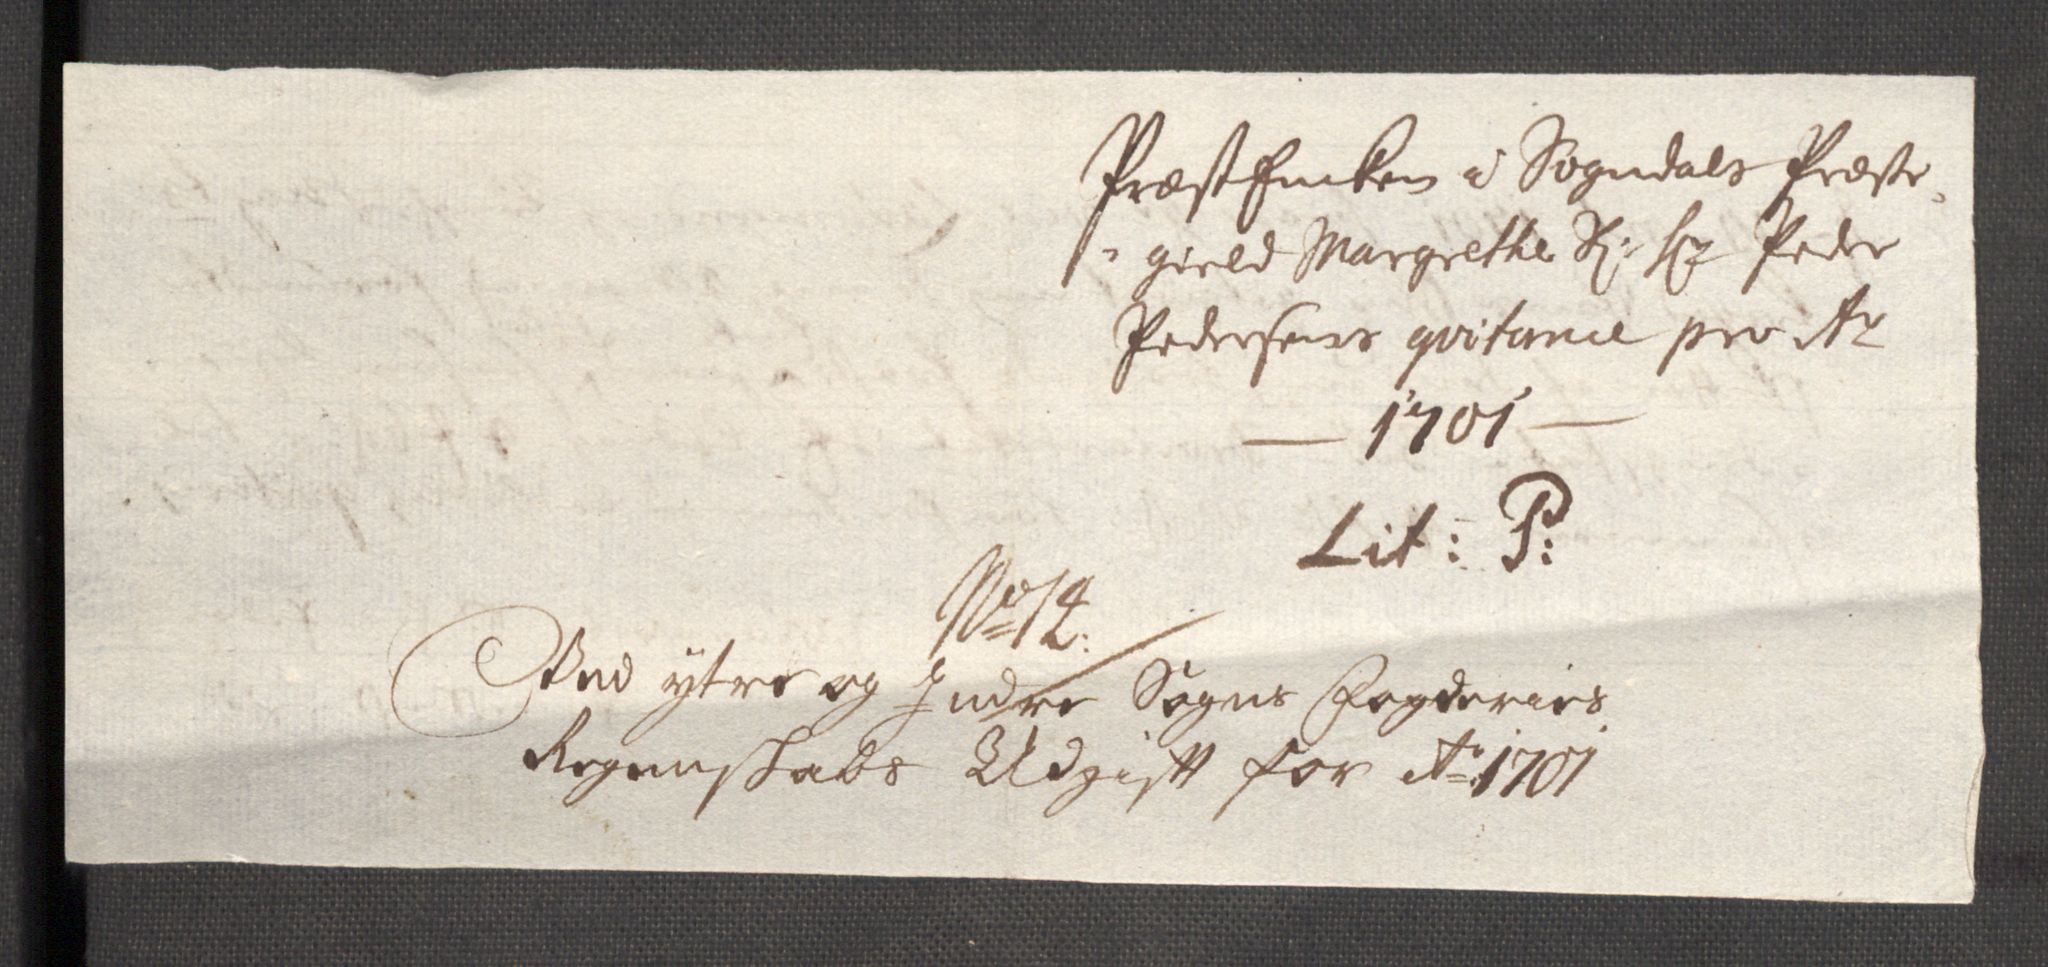 Præst Enken i Sogndals Præste-
gield Margrethe Sl: Hr Peder
Pedersens qvitance pro Ao
1701
Lit: P:
No 12.
Ved ytre og Indre Sogns Fogderies
Regenskabs Udgift for Ao 1701